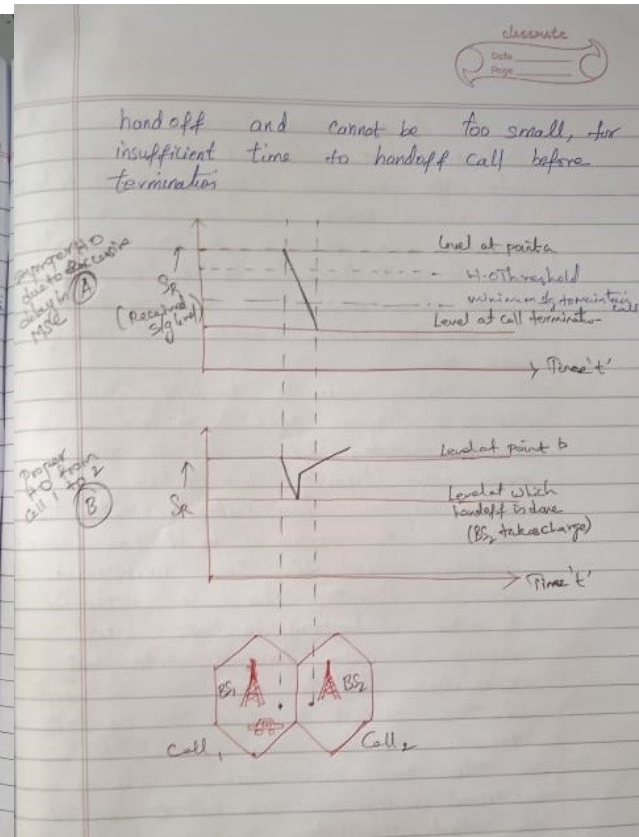 classmate
Date
Page
hand off and cannot be too small, for
insufficient time to handoff call before
termination
Improper HO
due to excessive
delay in
MSC
A
SR
(Received
s/g level)
Level at point a
H.O Threshold
minimum s/g to maintain calls
Level at call termination
Time 't'
Proper
HO from
cell 1 to 2
B
SR
Level at point b
Level at which
handoff is done
(BS2 takes charge)
Time 't'
BS1
BS2
Cell 1
Cell 2